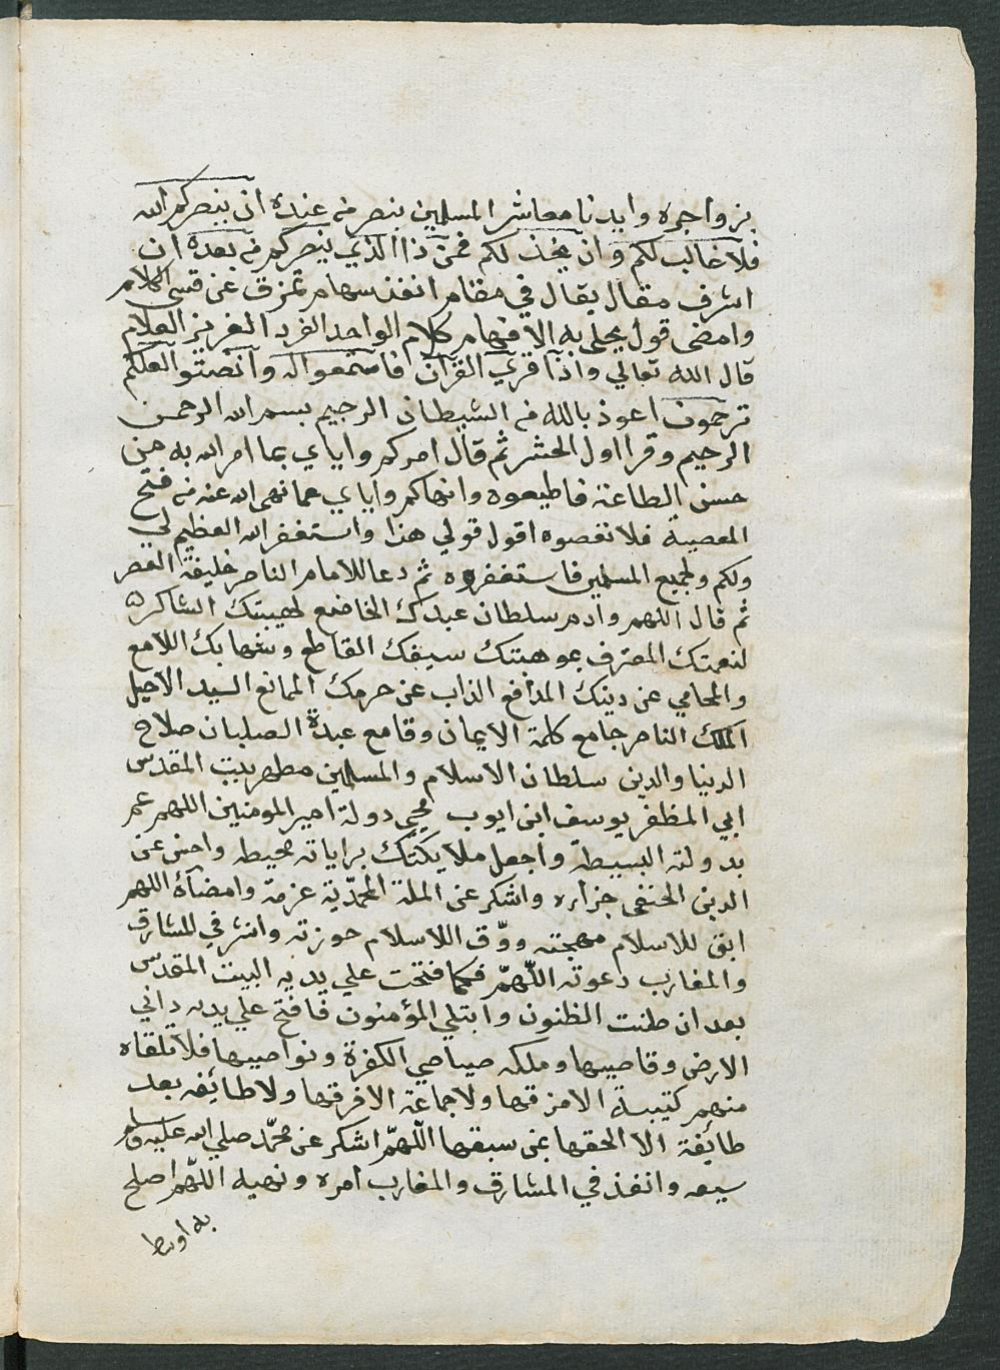 بزواجره وايدنا معاشر المسلمين بنصر من عنده ان ينصركم الله
فلا غالب لكم وان يخذلكم فمن ذا الذي ينصركم من بعده ان
اشرف مقال يقال في مقام انفذ سهام تمزق عن قسي الكلام
وامضى قول يحلى به الافهام كلام الواحد الفرد العزيز العلام
قال الله تعالي واذا قرئ القرآن فاستمعوا له وانصتوا لعلكم
ترحمون اعوذ بالله من الشيطان الرجيم بسم الله الرحمن
الرحيم وقرا اول الحشر ثم قال امركم واياي بما امر الله به من
حسن الطاعة فاطيعوه وانهاكم واياي عما نهى الله عنه من قبح
المعصية فلا تعصوه اقول قولي هذا واستغفر الله العظيم لي
ولكم ولجميع المسلمين فاستغفروه ثم دعا للامام الناصر خليفة العصر
ثم قال اللهم وادم سلطان عبدك الخاضع لهيبتك الشاكر
لنعمتك المعترف بموهبتك سيفك القاطع وشهابك اللامع
والمحامي عن دينك المدافع الذاب عن حرمك الممانع السيد الاجل
الملك الناصر جامع كلمة الايمان وقامع عبدة الصلبان صلاح
الدنيا والدين سلطان الاسلام والمسلمين مطهر بيت المقدس
ابي المظفر يوسف ابن ايوب محيي دولة امير المومنين اللهم عم
بدولته البسيطة واجعل ملايكتك براياته محيطه واحسن عن
الدين الحنفي جزاءه واشكر عن الملة المحمدية عزمه وامضآه اللهم
ابق للاسلام مهجته ووق اللاسلام حوزته وانشر في المشارق
والمغارب دعوته اللهم فكما فتحت علي يديه البيت المقدس
بعد ان ظنت الظنون وابتلي المؤمنون فافتح علي يديه داني
الارض وقاصيها وملكه صياصي الكفرة ونواصيها فلا تلقاه
منهم كتيبة الا مزقها ولا جماعة الا فرقها ولا طايفه بعد
طائفة الا الحقها بمن سبقها اللهم اشكر عن محمد صلي الله عليه وسلم
سعيه وانفذ في المشارق والمغارب امره ونهيه اللهم اصلح
به اوسط